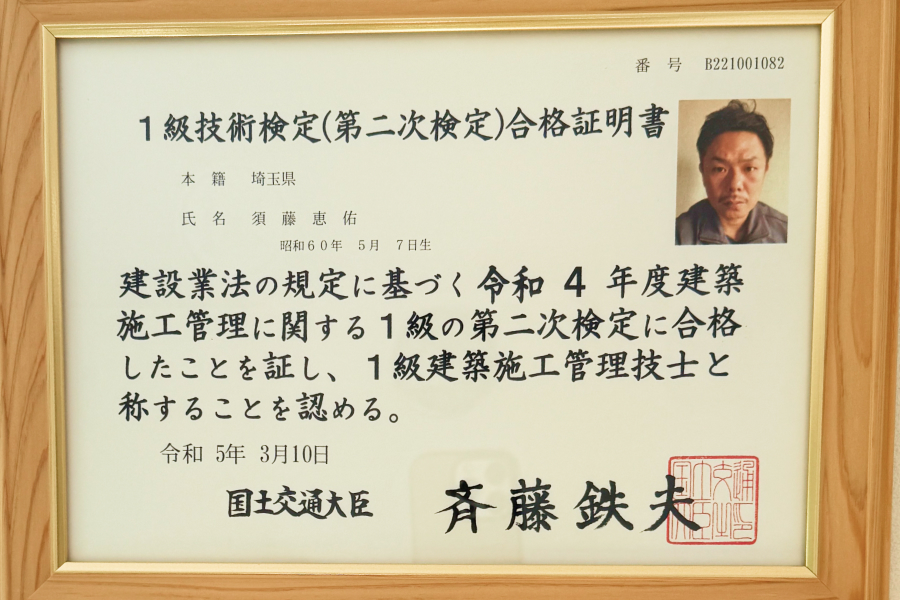 番 号 B221001082
1級技術検定(第二次検定)合格証明書
本 籍 埼玉県
氏 名 須 藤 恵 佑
昭和60年 5月 7日生
建設業法の規定に基づく令和 4 年度建築
施工管理に関する1級の第二次検定に合格
したことを証し、1級建築施工管理技士と
称することを認める。
令和 5年 3月10日
国土交通大臣 斉藤鉄夫